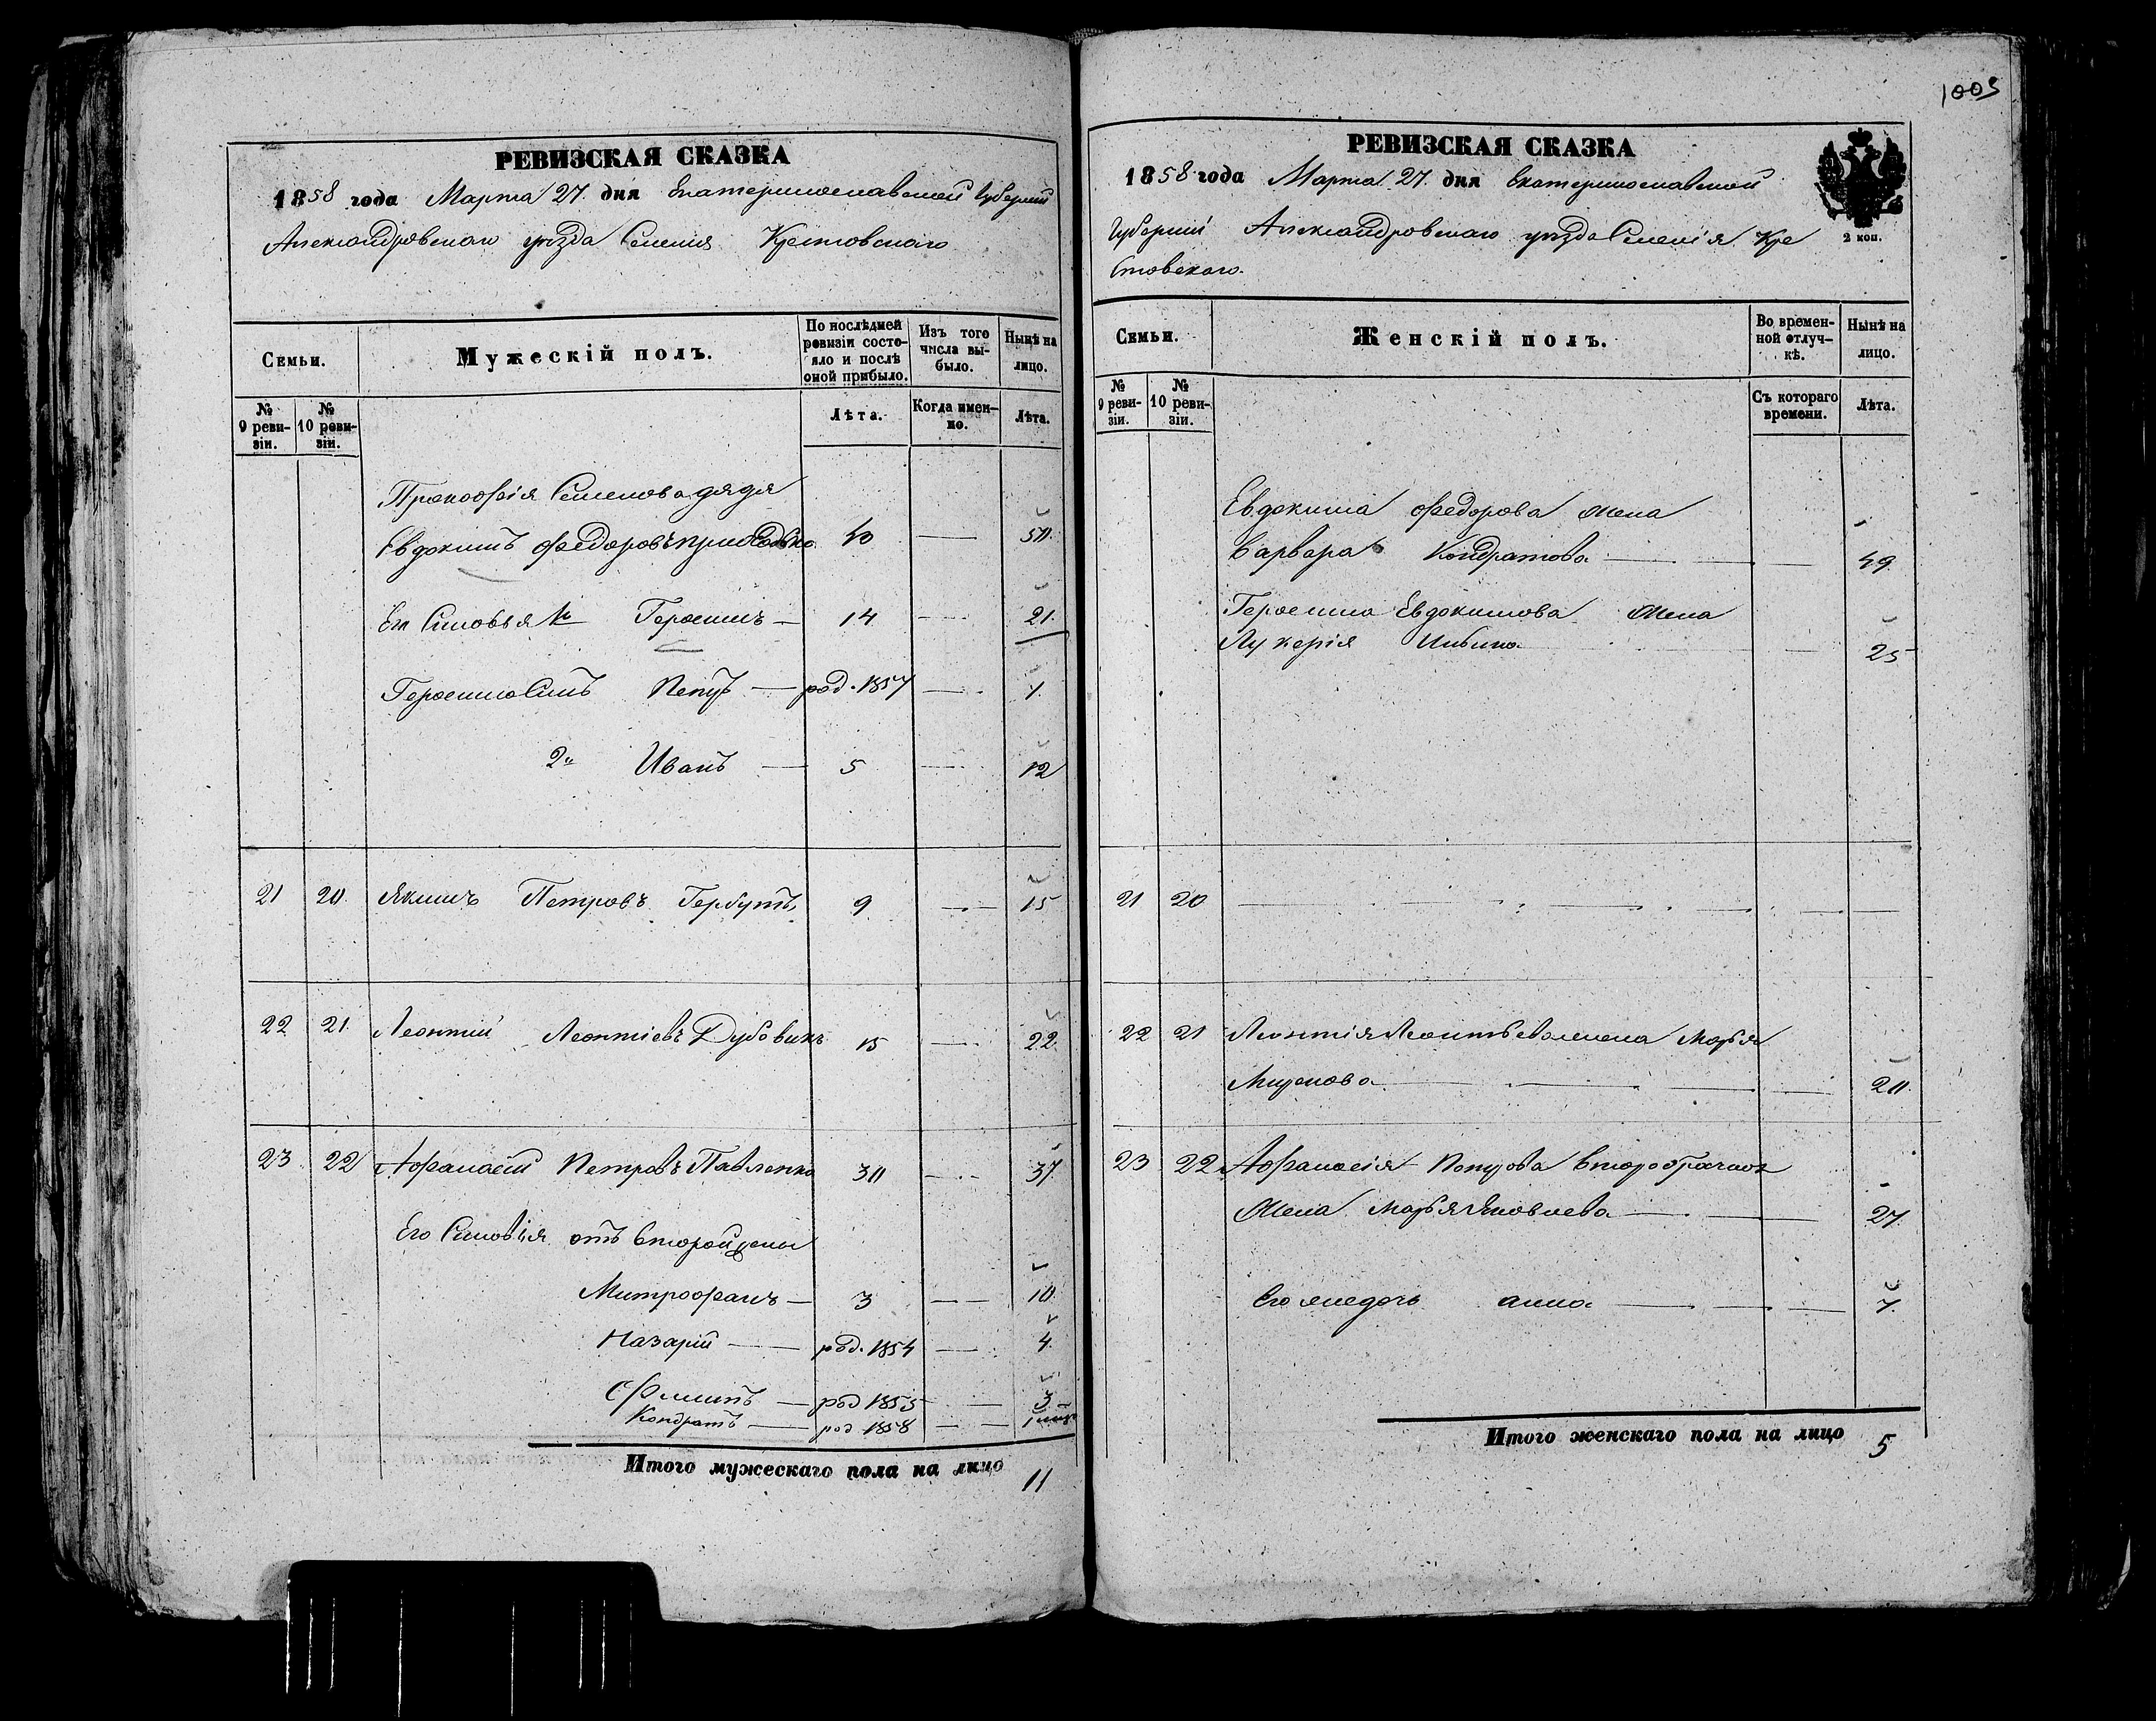 1005
РЕВИЗСКАЯ СКАЗКА
1858 года Марта 27. дня Екатеринославской Губерніи
Александровскаго уѣзда Селенія Крестовскаго
Семьи.
Мужескій полъ.
По послѣдней ревизіи состо-
яло и послѣ
оной прибыло.
Изъ того
числа вы-
было.
Нынѣ на
лицо.
№
9 реви-
зіи.
№
10 реви-
зіи.
Лѣта.
Когда имен-
но.
Лѣта.
Прокофія Семенова дядя
Евдокимъ Федоровъ Приходько — 50.
Его Сыновья 1й Герасимъ — 14 — 21.
Герасима Сынъ Петръ — род. 1857 — 1.
2й Иванъ — 5 — 12
21 20. Якимъ Петровъ Гербутъ 9 — 15
22 21. Леонтій Леонтіевъ Дубовикъ 15 — 22.
23 22 Афанасій Петровъ Павленко 30 — 37.
Его Сыновія отъ второй жены
Митрофанъ — 3 — 10.
Назарій — род. 1854 — 4.
род 1855 — 3
Кондратъ — род 1858 — 1 мѣс.
Итого мужескаго пола на лицо 11
РЕВИЗСКАЯ СКАЗКА
1858 года Марта 27. дня Екатеринославской
Губерніи Александровскаго уѣзда Селенія Кре
стовскаго.
2 коп.
Семьи.
Женскій полъ.
Во времен-
ной отлуч-
кѣ.
Нынѣ на
лицо.
№
9 реви-
зіи.
№
10 реви-
зіи.
Съ котораго
времени.
Лѣта.
Евдокима Федорова жена
Варвара Кондратова — 49.
Герасима Евдокимова жена
Лукерія — 25
21 20
22 21 Леонтія Леонтьева жена Марья
Миронова — 20.
23 22 Афанасія Петрова второбрачная
жена Марья Яковлева — 27.
Анна — 7.
Итого женскаго пола на лицо 5